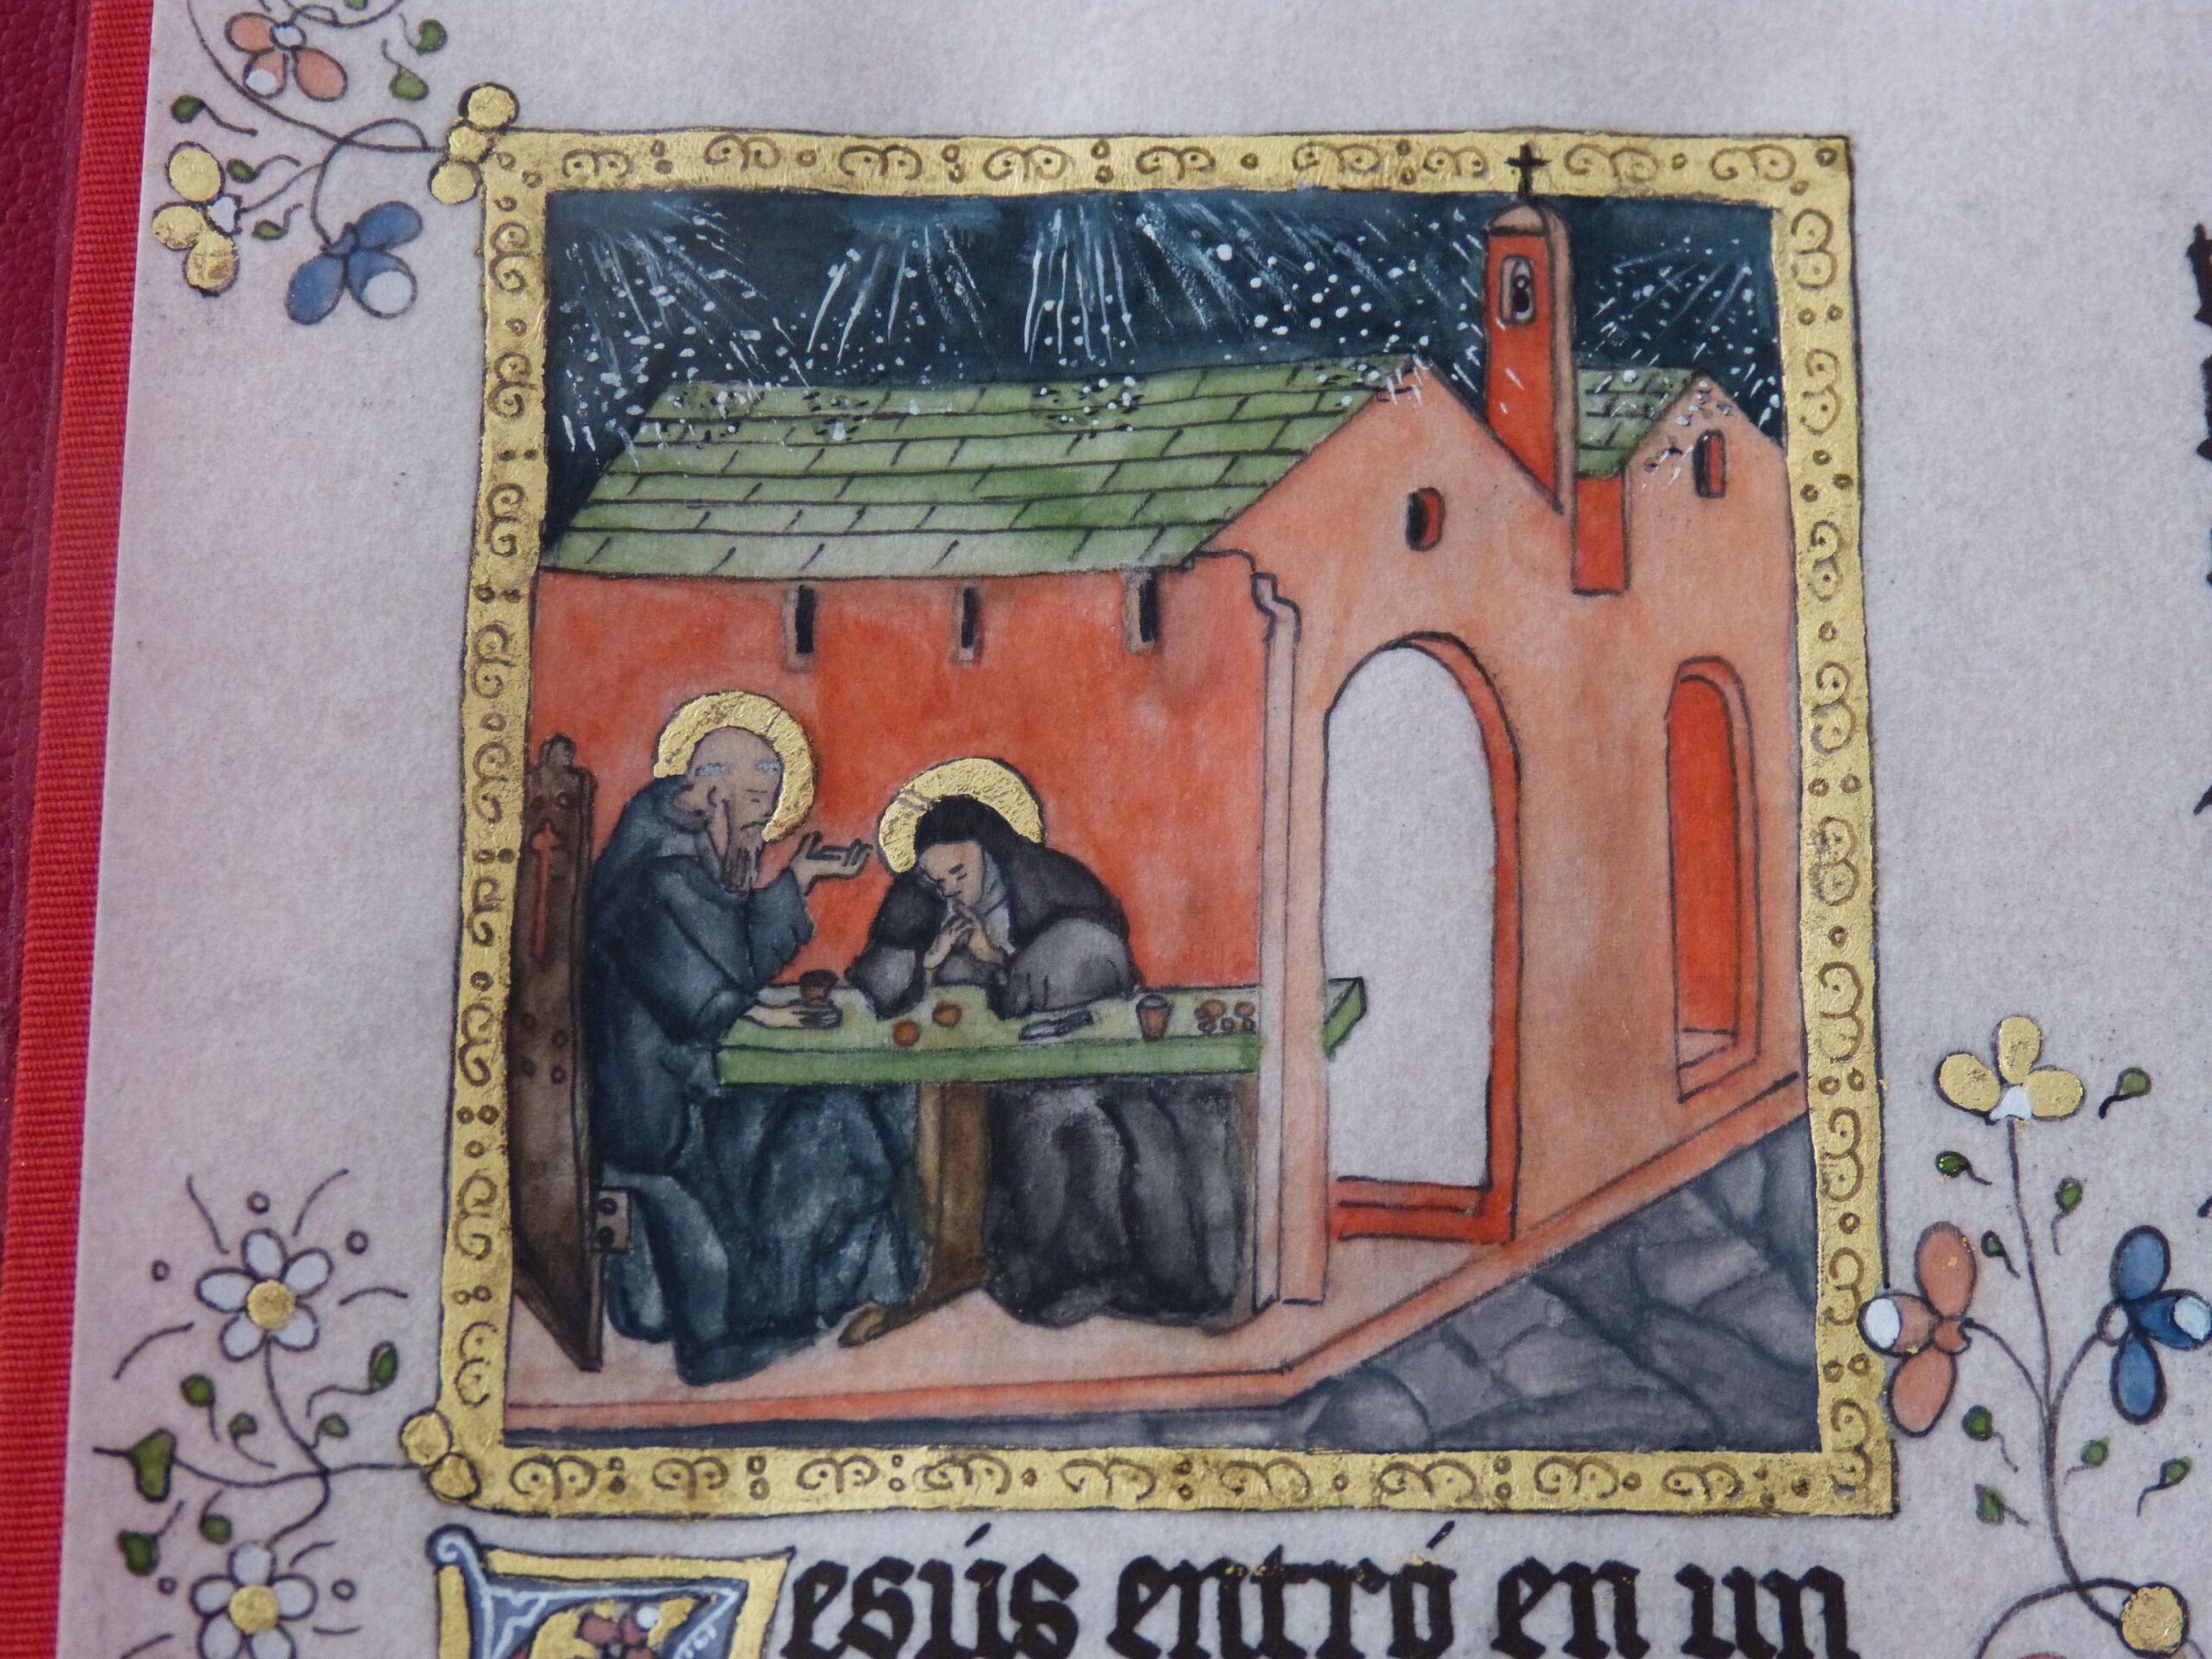 Jesús entró en un